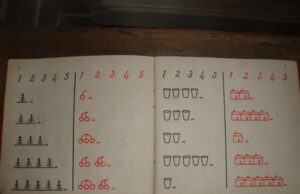 1 2 3 4 5 1 2 3 4 5
1 2 3 4 5 1 2 3 4 5